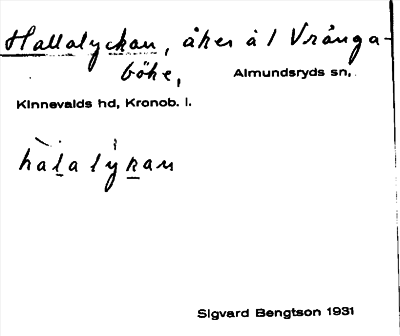 Hallalyckan, åker å 1 Vrånga-
böke, Almundsryds sn,
Kinnevalds hd, Kronob. l.
hàlalẏkan
Sigvard Bengtson 1931